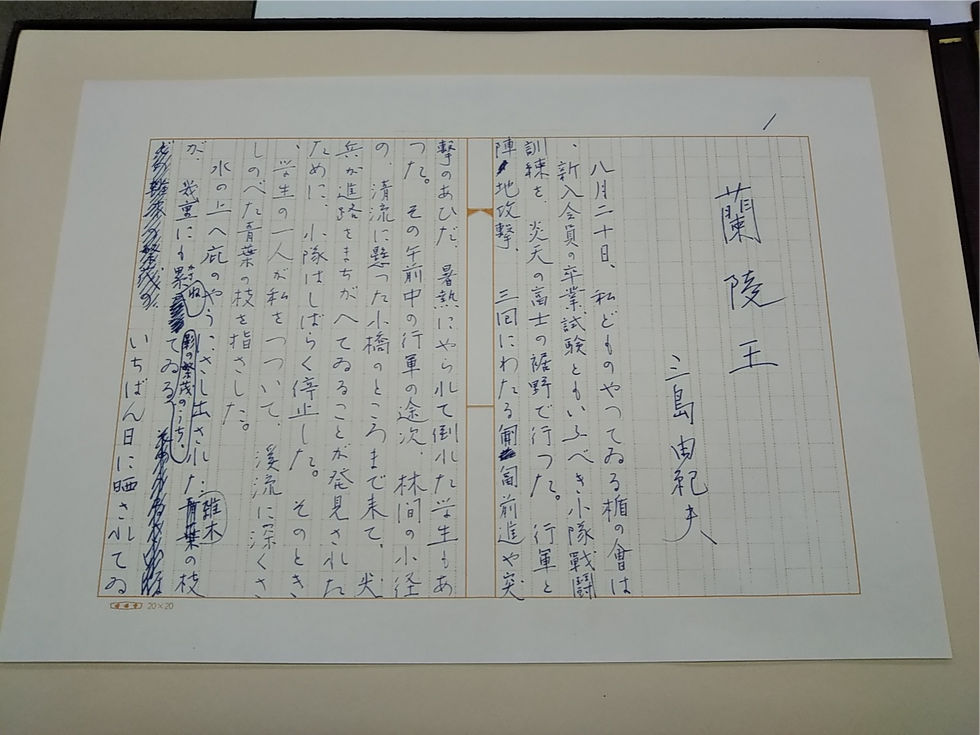 1
蘭陵王
三島由紀夫
八月二十日、私どものやつてゐる楯の會は
、新入会員の卒業試験ともいふべき小隊戦闘
訓練を、炎天の富士の裾野で行つた。行軍と
陣地攻撃、三回にわたる匍匐前進や突
撃のあひだ、暑熱にやられて倒れた学生もあ
つた。その午前中の行軍の途次、林間の小径
の、清流に懸つた小橋のところまで来て、尖
兵が進路をまちがへてゐることが発見された
ために、小隊はしばらく停止した。そのとき
、学生の一人が私をつついて、渓流に深くさ
しのべた青葉の枝を指さした。
水の上へ庇のやうにさし出された雑木青葉の枝
が、幾重にも累ねてゐる影の繁茂のうち、
いちばん日に晒されてゐ
20×20